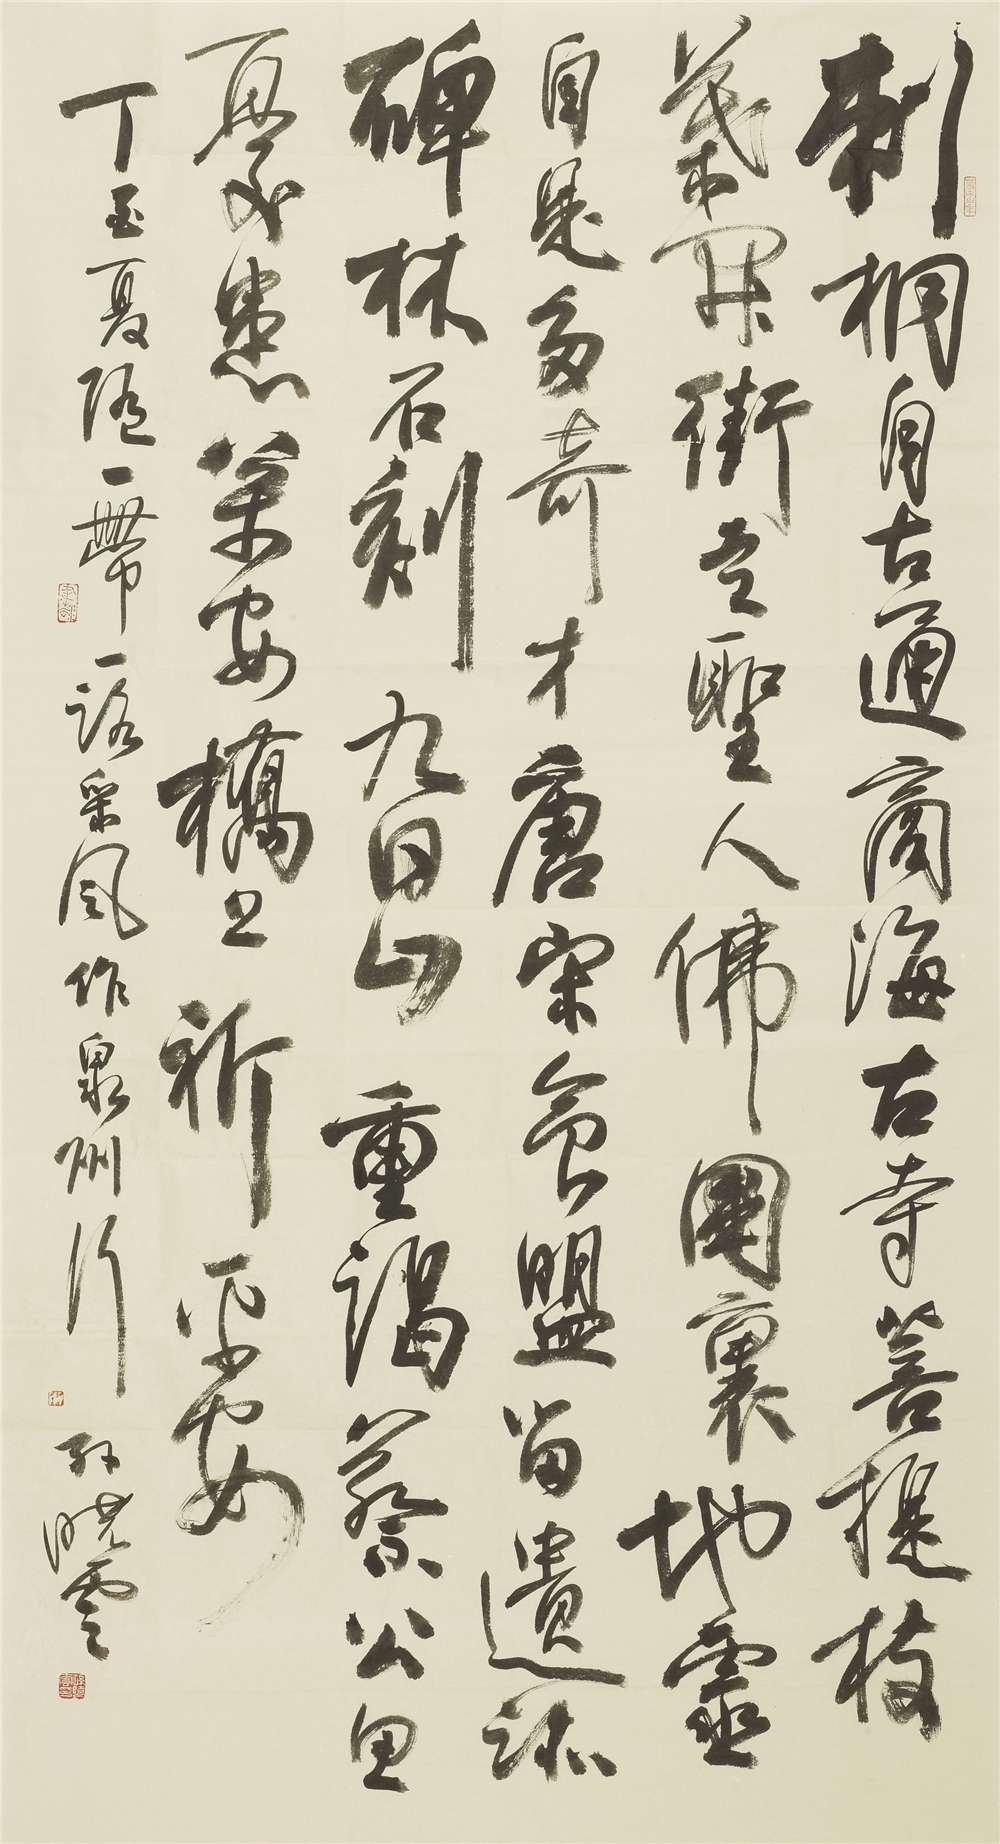 刺桐自古通商海古寺菩提枝
葉開街走聖人佛國裏地靈
自是多奇才唐宋會盟留遺跡
碑林石刻九日山重謁蔡公思
憂患萬安橋上祈平安
丁酉夏隨一帶一路采風作泉州行 孫曉雲